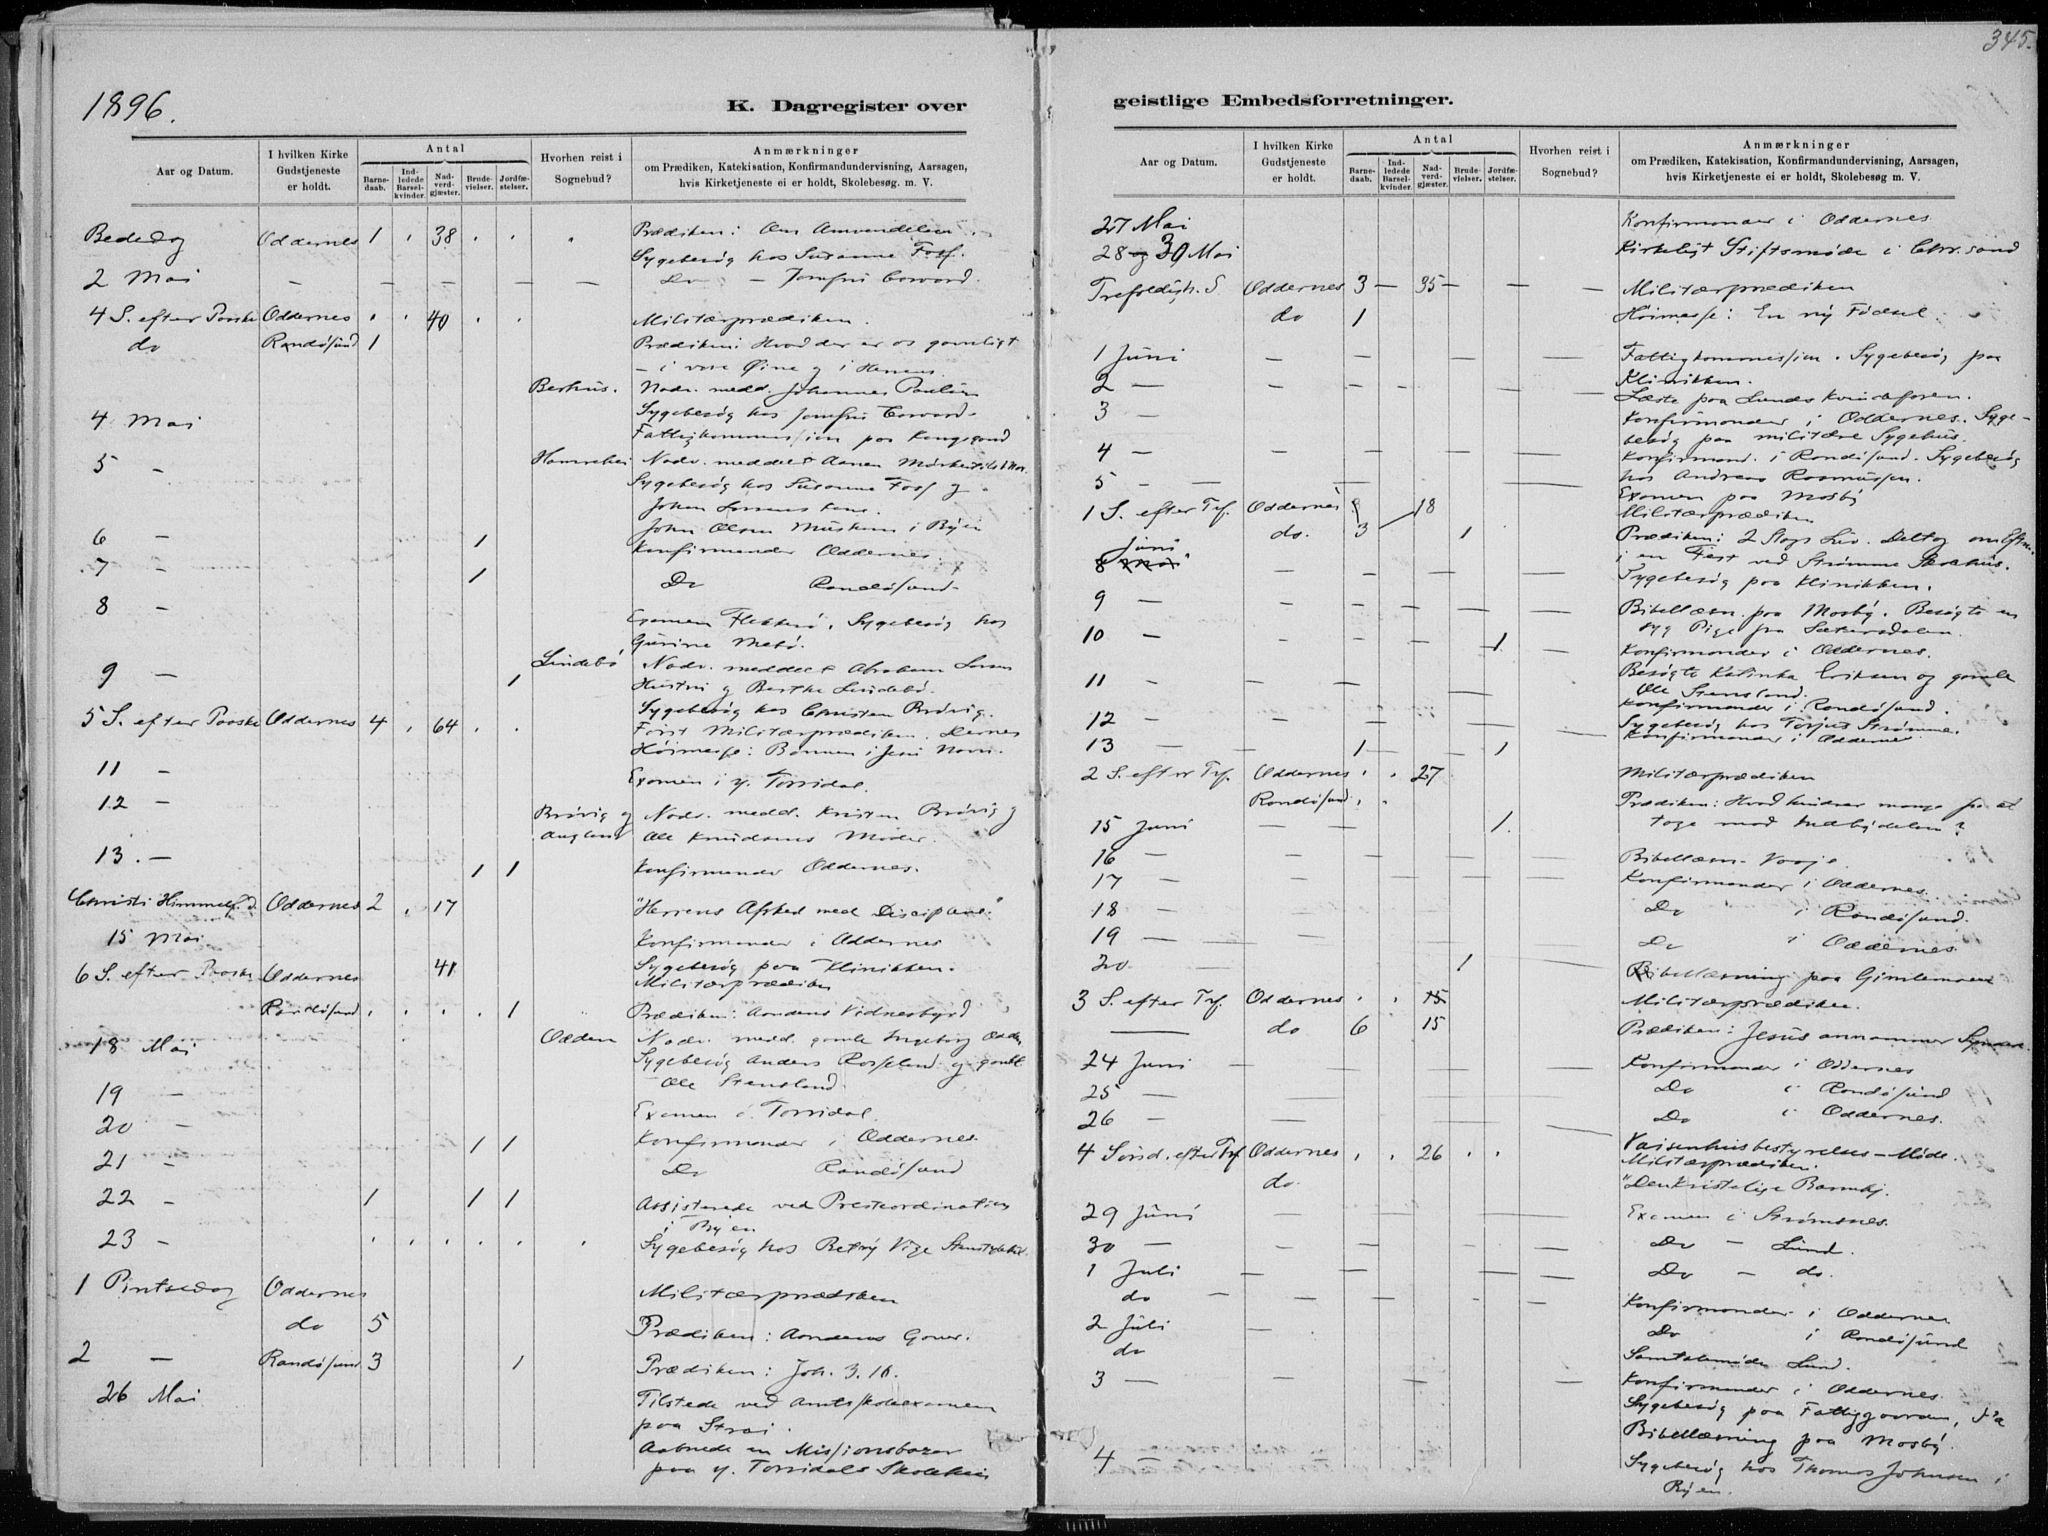 345.
1896.
K. Dagregister over
geistlige Embedsforretninger.
Aar og Datum.
I hvilken Kirke Gudstjeneste er holdt.
Antal
Barnedaab.
Indledede Barselkvinder.
Nadverdgjæster.
Brudevielser.
Jordfæstelser.
Hvorhen reist i Sognebud?
Anmærkninger
om Prædiken, Katekisation, Konfirmandundervisning, Aarsagen,
hvis Kirketjeneste ei er holdt, Skolebesøg m. V.
Bededag Oddernes 1 38 Prædiken: Om Omvendelsen
Sygebesøg hos Susanne Foss.
2 Mai — — — — — — — Do — Jomfru
4 S. efter Paaske Oddernes 40 Militærprædiken.
do Randøsund 1 Prædiken: Hvad der er os gavnligt
— i vore Øine og i Herrens
Nadv. medd. Johannes
4 Mai Sygebesøg hos Jomfru
Fattigkommission paa Kongsgaard
5 — Nadv. meddelt
Sygebesøg hos Susanne Foss og
Johan
John Olsen i Byen
6 — 1 Konfirmander Oddernes.
7 — 1 Do Randøsund
8 — Examen Flekkerø. Sygebesøg hos
Gurine
Lindebø Nadv. meddelt Abraham
9 — 1 Hustru og Berthe Lindebø.
Sygebesøg hos Christen Brøvig.
5 S. efter Paaske Oddernes 4 64 Først Militærprædiken. Dernæst
Høimesse: Bønnen i Jesu Navn.
11 — Examen i y. Torridal.
12 — Brøvig og Nadv. medd. Kristen Brøvig og
Ole Knudsens Moder.
13 — 1 1 Konfirmander Oddernes.
Christi Himmelf. D. Oddernes 2 17 "Herrens Afsked med Disciplene."
15 Mai Konfirmander i Oddernes
Sygebesøg paa Klinikken.
6 S. efter Paaske Oddernes 41 Militærprædiken
Randøsund 1 Prædiken: Aandens Vidnesbyrd
18 Mai Nadv. medd. gamle Ingeborg
Sygebesøg Anders Rosseland og gamle
Ole Stensland.
19 — Examen i Torridal.
20 — 1 1 Konfirmander i Oddernes
21 — Do Randøsund
22 — 1 1 1 Assisterede ved Presteordination
i Byen
23 — Sygebesøg hos Betzy Vige
1 Pintsedag Oddernes Militærprædiken
do 5 Prædiken: Aandens Gaver.
2 — Randøsund 3 1 Prædiken: Joh. 3. 16.
26 Mai Tilstede ved Amtsskoleexamen
paa Strai.
Aabnede en Missionsbazar
paa y. Torridals Skolehus
Aar og Datum.
I hvilken Kirke Gudstjeneste er holdt.
Antal
Barnedaab.
Indledede Barselkvinder.
Nadverdgjæster.
Brudevielser.
Jordfæstelser.
Hvorhen reist i Sognebud?
Anmærkninger
om Prædiken, Katekisation, Konfirmandundervisning, Aarsagen,
hvis Kirketjeneste ei er holdt, Skolebesøg m. V.
27 Mai Konfirmander i Oddernes
28 og 30 Mai Kirkeligt Stiftsmøde i Chr.sand
Trefoldigh. S. Oddernes 3 — 35 — — — Militærprædiken
do 1 Høimesse: En ny Fødsel.
1 Juni — — — — — — Fattigkommission. Sygebesøg paa
2 — Klinikken.
Læste paa Lunds Kvindeforen.
3 — Konfirmander i Oddernes. Sygebesøg paa militære Sygehus.
4 — Konfirmand. i Randøsund. Sygebesøg
5 — hos Andreas Rasmussen.
Examen paa Mosby
1 S. efter Tref. Oddernes 18 Militærprædiken
do. 3 1 Prædiken: 2 Slags Liv. Deltog om Efterm.
Juni
8 i en Fest ved Strømme Skolehus.
Sygebesøg paa Klinikken.
9 — Bibellæsn. paa Mosby. Besøgte en
syg Pige fra Sætersdalen.
10 — 1 Konfirmander i Oddernes.
11 — Besøgte Kalinka Eriksen og gamle
Ole Stensland.
12 — Konfirmander i Randøsund.
Sygebesøg hos Torjus Strømme.
13 — 1 1 Konfirmander i Oddernes
2 S. efter Tref. Oddernes 27 Militærprædiken
Randøsund Prædiken: Hvad hindrer mange fra at
15 Juni 1 tage mod Indbydelsen?
16 — Bibellæsn.
17 — Konfirmander i Oddernes.
18 — Do i Randøsund.
19 — Do i Oddernes
20 1 Bibellæsning paa Gimlemoen
3 S. efter Tref. Oddernes 15 Militærprædiken.
— do 6 15 Prædiken: Jesus annammer Syndere.
24 Juni Konfirmander i Oddernes
25 — Do i Randøsund
26 — Do i Oddernes.
Vaisenhusbestyrelses-Møde.
4 Sønd. efter Tref Oddernes 26 Militærprædiken.
do. "Den kristelige Barmhj.
29 Juni Examen i Strømsnes.
30 — Do — Lund.
1 Juli Do — do.
do Konfirmander i Oddernes
2 Juli Do i Randøsund
do Samtalemøde Lund.
3 — Konfirmander i Oddernes.
Sygebesøg paa Fattiggaarden,
Bibellæsning paa Mosby.
4 — Sygebesøg hos Thomas Johnsen i
Byen.